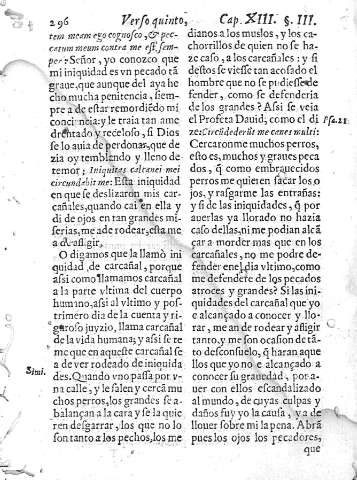 296 Verso quinto, Cap. XIII. §. III.
tem meam ego cognosco, & pec-
catum meum contra me est sem-
per? Señor, yo conozco que
mi iniquidad es vn pecado tã
graue, que aunque del aya he
cho mucha penitencia, siem-
pre a de estar remordiẽdo mi
conciencia: y le traia tan ame
drentado y receloso, si Dios
se lo auia de perdonar, que de
zia oy temblando y lleno de
temor; Iniquitas calcanei mei
circundabit me: Esta iniquidad
en que se deslizaròn mis car-
cañales, quando caì en ella y
di de ojos en tan grandes mi-
serias, me a de rodear, esta me
a de afligir.
O digamos que la llamò ini
quidad de carcañal, porque
assi como llamamos carcañal
a la parte vltima del cuerpo
humano, assi al vltimo y pos-
trimero dia de la cuenta y ri-
guroso juyzio, llama carcañal
de la vida humana; y assi se te
me que en aqueste carcañal se
a de ver rodeado de iniquida
Simi. des. Quando vno passa por v-
na calle, y le salen y cercã mu
chos perros, los grandes se a-
balançan a la cara y se la quie
ren desgarrar, los que no lo
son tanto a los pechos, los me
dianos a los muslos, y los ca-
chorrillos de quien no se ha-
ze caso, a los carcañales: y si
destos se viesse tan acosado el
hombre que no se pudiesse de
fender, como se defenderia
de los grandes? Assi se veia
el Profeta Dauid, como el di
ze: Circũdederũt me canes multi: Psa. 21.
Cercaronme muchos perros,
esto es, muchos y graues peca
dos, q̃ como embrauecidos
perros me quieren sacar los o
jos, y rasgarme las entrañas:
y si de las iniquidades, q̃ por
auerlas ya llorado no hazia
caso dellas, ni me podian alcã
çar a morder mas que en los
carcañales, no me podre de-
fender enel dia vltimo, como
me defendere de los pecados
atroces y grandes? Si las ini-
quidades del carcañal que yo
e alcançado a conocer y llo-
rar, me an de rodear y afligir
tanto, y me son ocasion de tã-
to desconsuelo, q̃ haran aque
llos que yo no e alcançado a
conocer su grauedad, por a-
uer con ellos escandalizado
al mundo, de cuyas culpas y
daños fuy yo la causa, y a de
llouer sobre mi la pena. Abrã
pues los ojos los pecadores,
que